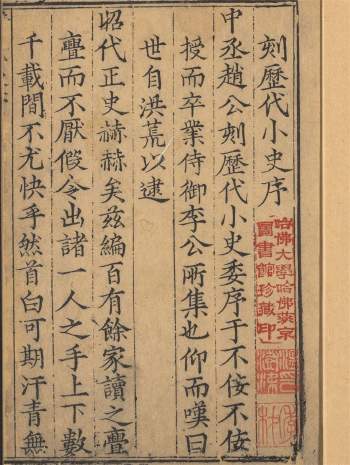 刻歷代小史序
中丞趙公刻歷代小史委序于不佞不佞
授而卒業侍御李公所集也仰而嘆曰
世自洪荒以逮
昭代正史赫赫矣茲編百有餘家讀之亹
亹而不厭假令出諸一人之手上下數
千載間不尤快乎然首白可期汗青無
哈佛大學哈佛燕京
圖書館珍藏印